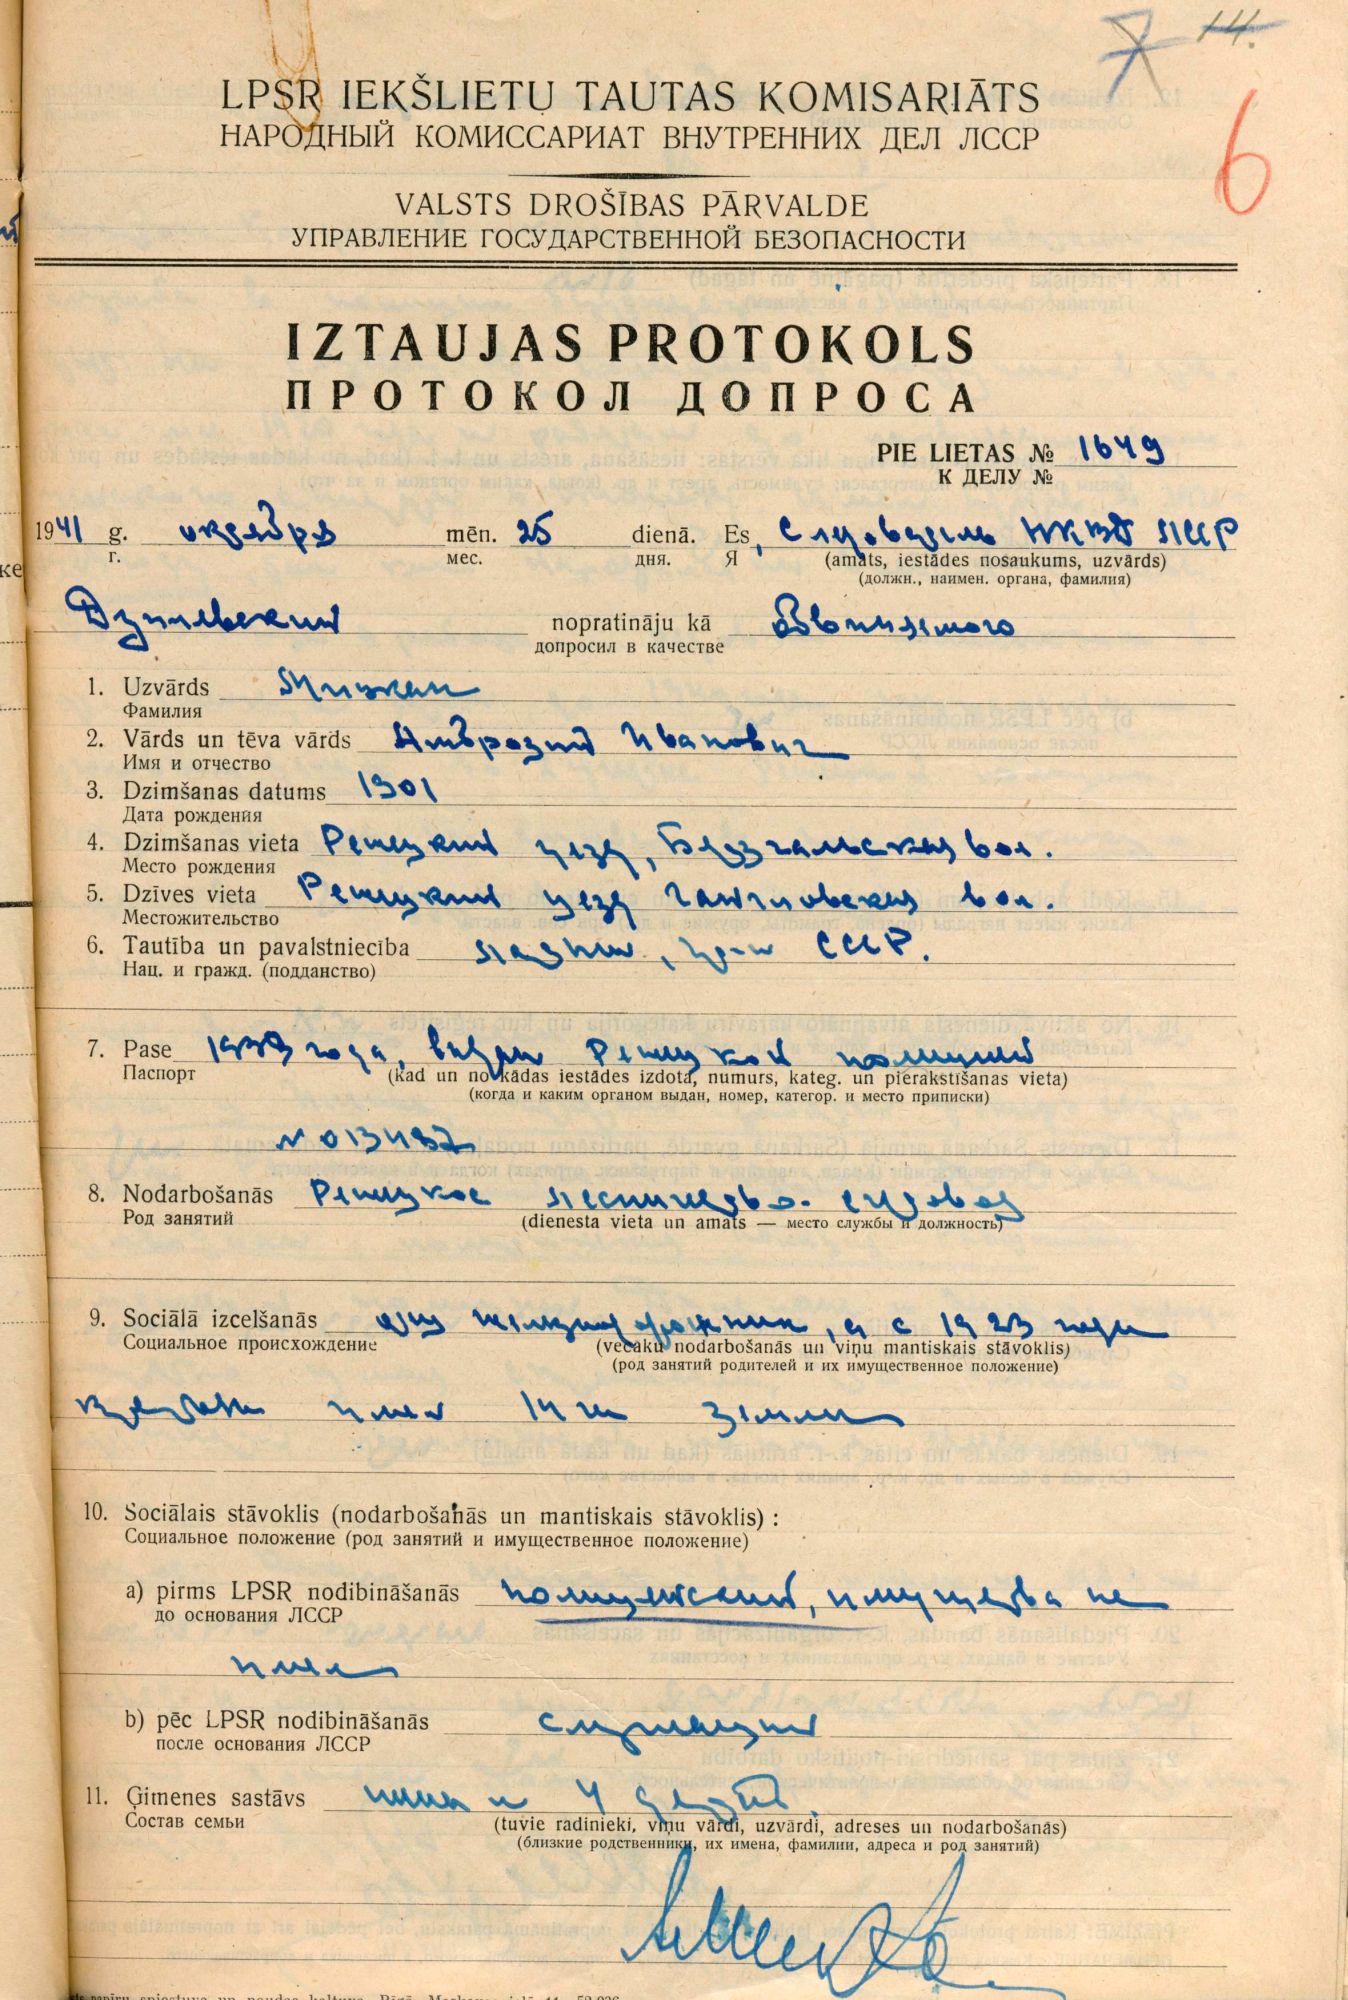 7 14.
6
LPSR IEKŠLIETU TAUTAS KOMISARIĀTS
НАРОДНЫЙ КОМИССАРИАТ ВНУТРЕННИХ ДЕЛ ЛССР
VALSTS DROŠĪBAS PĀRVALDE
УПРАВЛЕНИЕ ГОСУДАРСТВЕННОЙ БЕЗОПАСНОСТИ
IZTAUJAS PROTOKOLS
ПРОТОКОЛ ДОПРОСА
PIE LIETAS № 1649
К ДЕЛУ №
1941 g. октября mēn. 25 dienā. Es, Следователь НКВД ЛССР
г. мес. дня. Я (amats, iestādes nosaukums, uzvārds)
(должн., наимен. органа, фамилия)
nopratināju kā Обвиняемого
допросил в качестве
1. Uzvārds
Фамилия
2. Vārds un tēva vārds Амброзий Иванович
Имя и отчество
3. Dzimšanas datums 1901
Дата рождения
4. Dzimšanas vieta Режицкий уезд, вол.
Место рождения
5. Dzīves vieta Режицкий уезд вол.
Местожительство
6. Tautība un pavalstniecība латыш, гр-н СССР.
Нац. и гражд. (подданство)
7. Pase года, выдан Режицкой полицией
Паспорт (kad un no kādas iestādes izdota, numurs, kateg. un pierakstīšanas vieta)
(когда и каким органом выдан, номер, категор. и место приписки)
8. Nodarbošanās Режицкое лесничество.
Род занятий (dienesta vieta un amats — место службы и должность)
9. Sociālā izcelšanās отец железнодорожник, а с 1923 года
Социальное происхождение (vecāku nodarbošanās un viņu mantiskais stāvoklis)
(род занятий родителей и их имущественное положение)
имел 14 га земли
10. Sociālais stāvoklis (nodarbošanās un mantiskais stāvoklis) :
Социальное положение (род занятий и имущественное положение)
a) pirms LPSR nodibināšanās полицейский, имущества не
до основания ЛССР
имел
b) pēc LPSR nodibināšanās служащий
после основания ЛССР
11. Ģimenes sastāvs жена и 4 детей
Состав семьи (tuvie radinieki, viņu vārdi, uzvārdi, adreses un nodarbošanās)
(близкие родственники, их имена, фамилии, адреса и род занятий)